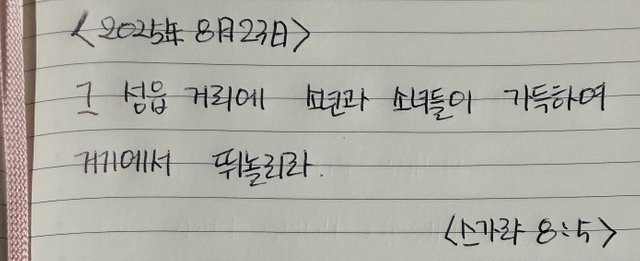 <2025年 8月23日>
그 성읍 거리에 소년과 소녀들이 가득하여
거기에서 뛰놀리라.
<스가랴 8:5>